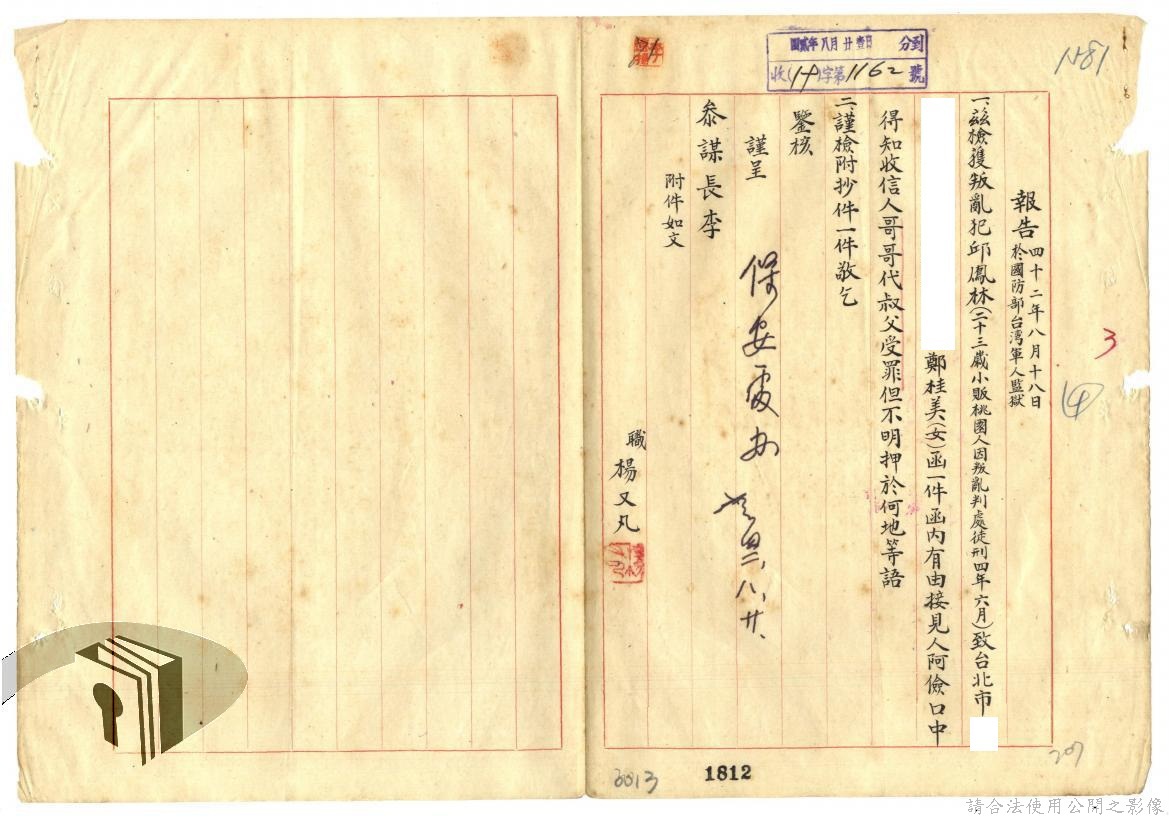 1181
四貳年八月廿壹日 分到
收( )字第1162號
報告 四十二年八月十八日
於國防部台湾軍人監獄
一、茲檢獲叛亂犯邱鳳林(二十三歲小販桃園人因叛亂判處徒刑四年六月)致台北市
鄭桂美(女)函一件函内有由接見人阿儉口中
得知收信人哥哥代叔父受罪但不明押於何地等語
二、謹檢附抄件一件敬乞
鑒核
謹呈
叅謀長李
附件如文
保安處办
八、廿、
職楊又凡
3
207
3013
1812
請合法使用公開之影像